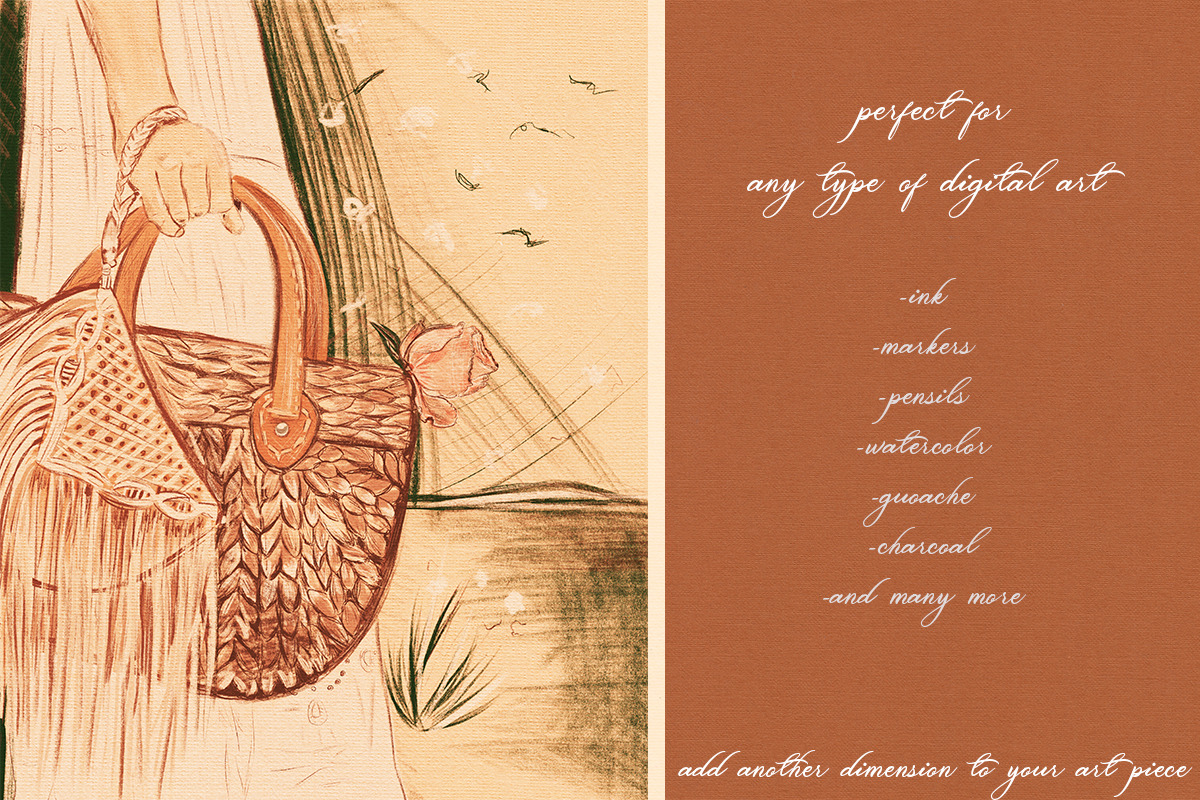 perfect for
any type of digital art
-ink
-markers
-pensils
-watercolor
-guoache
-charcoal
-and many more
add another dimension to your art piece